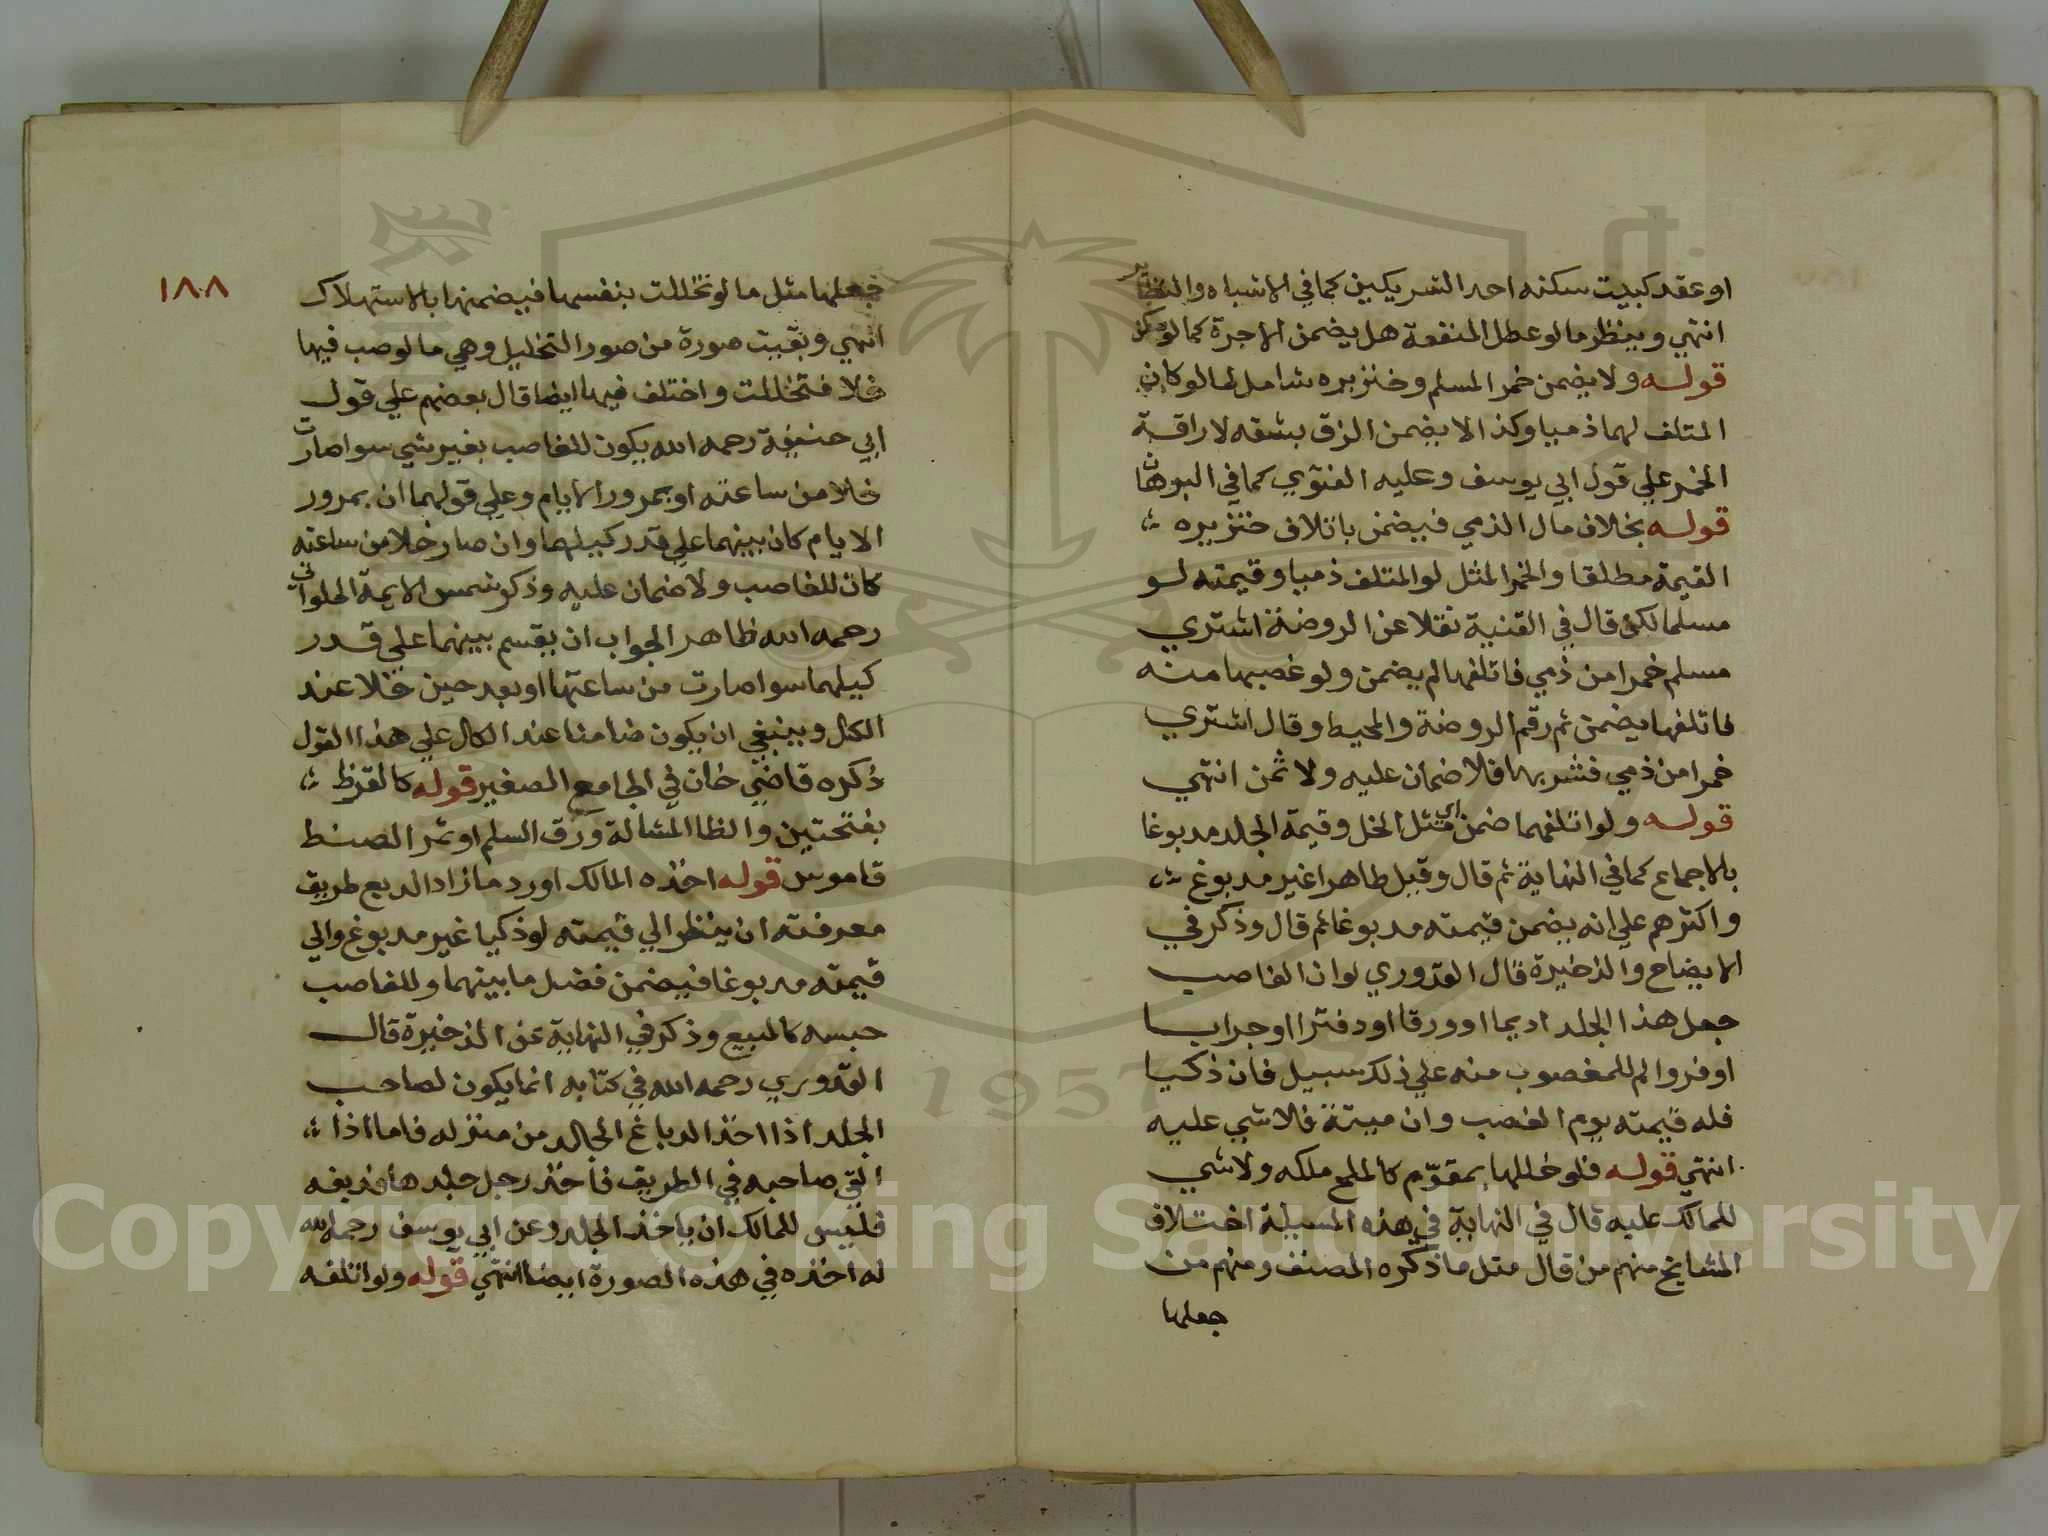 او عقد كبيت سكنه احد الشريكين كما في الاشباه والنظاير
انتهي وينظر ما لو عطل المنفعة هل يضمن الاجرة كما لو سكن
قوله ولا يضمن خمر المسلم وخنزيره شامل لما لو كان
المتلف لهما ذميا وكذا لا يضمن الزق بشقه لاراقة
الخمر علي قول ابي يوسف وعليه الفتوي كما في البرهان
قوله بخلاف مال الذمي فيضمن باتلاف خنزيره
القيمة مطلقا والخمر المثل لو المتلف ذميا وقيمته لو
مسلما لكن قال في القنية نقلا عن الروضة اشتري
مسلم خمرا من ذمي فاتلفها لم يضمن ولو غصبها منه
فاتلفها يضمن ثم رقم الروضة والمحيط وقال اشتري
خمرا من ذمي فشربها فلا ضمان عليه ولا ثمن انتهي
قوله ولو اتلفهما ضمن اي مثل الخل وقيمة الجلد مدبوغا
بالاجماع كما في النهاية ثم قال وقيل طاهرا غير مدبوغ
واكثرهم علي انه يضمن قيمته مدبوغا ثم قال وذكر في
الايضاح والذخيرة قال القدوري لو ان الغاصب
جعل هذا الجلد اديما او ورقا او دفترا او جرابا
او فروا لم للمغصوب منه علي ذلك سبيل فان ذكيا
فله قيمته يوم الغصب وان ميتة فلا شي عليه
انتهي قوله فلو خللها بمقوّم كالملح ملكه ولا شي
للمالك عليه قال في النهاية في هذه المسيلة اختلاف
المشايخ منهم من قال مثل ما ذكره المصنف ومنهم من
جعلها
١٨٨
جعلها مثل ما لو تخللت بنفسها فيضمنها بالاستهلاك
انتهي وبقيت صورة من صور التخليل وهي ما لو صب فيها
خلا فتخللت واختلف فيها ايضا قال بعضهم علي قول
ابي حنيفة رحمه الله يكون للغاصب بغير شي سوا صارت
خلا من ساعته او بمرور الايام وعلي قولهما ان بمرور
الايام كان بينهما علي قدر كيلهما وان صار خلا من ساعته
كان للغاصب ولا ضمان عليه وذكر شمس الايمة الحلواني
رحمه الله ظاهر الجواب ان يقسم بينهما علي قدر
كيلهما سوا صارت من ساعتها او بعد حين خلا عند
الكل وينبغي ان يكون ضامنا عند الكل علي هذا القول
ذكره قاضي خان في الجامع الصغير قوله كالقرظ
بفتحتين والظا المشالة ورق السلم او ثمر الصنط
قاموس قوله اخذه المالك او رد ما زاد الدبغ طريق
معرفته ان ينظر الي قيمته لو ذكيا غير مدبوغ والي
قيمته مدبوغا فيضمن فضل ما بينهما وللغاصب
حبسه كالمبيع وذكر في النهاية عن الذخيرة قال
القدوري رحمه الله في كتابه انما يكون لصاحب
الجلد اذا اخذ الدباغ الجلد من منزله فاما اذا
القي صاحبه في الطريق فاخذ رجل جلدها فدبغه
فليس للمالك ان ياخذ الجلد وعن ابي يوسف رحمه الله
له اخذه في هذه الصورة ايضا انتهي قوله ولو اتلفه
Copyright © King Saud University
1957